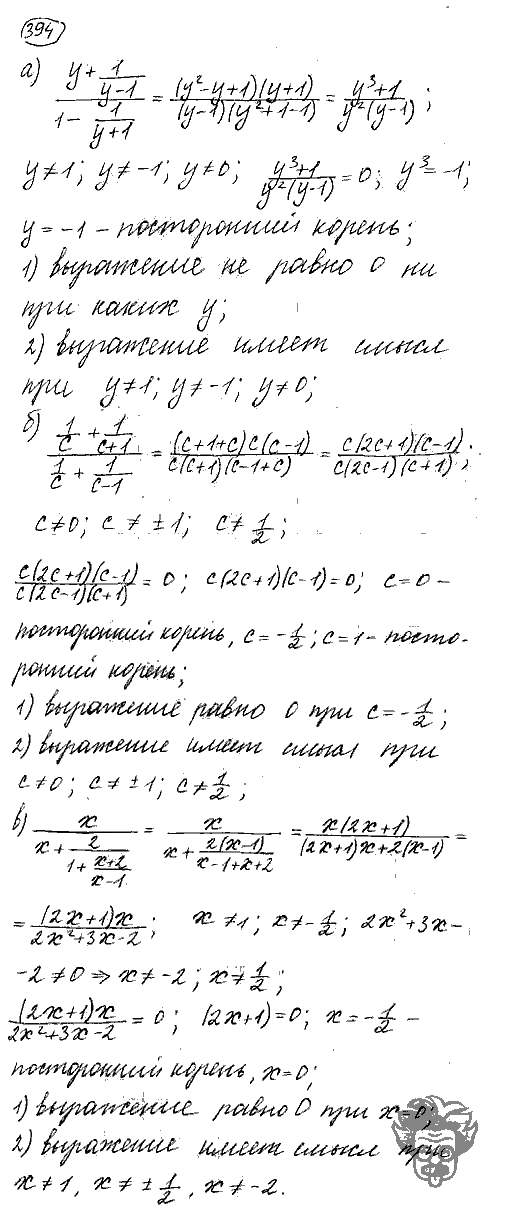 394
а) (y + 1/(y-1))/(1 - 1/(y+1)) = ((y²-y+1)(y+1))/((y-1)(y²+1-1)) = (y³+1)/(y²(y-1));
y≠1; y≠-1; y≠0; (y³+1)/(y²(y-1)) = 0; y³=-1;
y = -1 - посторонний корень;
1) выражение не равно 0 ни
при каких y;
2) выражение имеет смысл
при y≠1; y≠-1; y≠0;
б) (1/c + 1/(c+1))/(1/c + 1/(c-1)) = ((c+1+c)c(c-1))/(c(c+1)(c-1+c)) = (c(2c+1)(c-1))/(c(2c-1)(c+1));
c≠0; c≠±1; c≠1/2;
(c(2c+1)(c-1))/(c(2c-1)(c+1)) = 0; c(2c+1)(c-1)=0; c=0 -
посторонний корень, c=-1/2; c=1 - посто-
ронний корень;
1) выражение равно 0 при c=-1/2;
2) выражение имеет смысл при
c≠0; c≠±1; c≠1/2;
в) x/(x + 2/(1 + (x+2)/(x-1))) = x/(x + 2(x-1)/(x-1+x+2)) = (x(2x+1))/((2x+1)x+2(x-1)) =
= ((2x+1)x)/(2x²+3x-2); x≠1; x≠-1/2; 2x²+3x-
-2≠0 ⇒ x≠-2; x≠1/2;
((2x+1)x)/(2x²+3x-2) = 0; (2x+1)=0; x=-1/2 -
посторонний корень, x=0;
1) выражение равно 0 при x=0;
2) выражение имеет смысл при
x≠1, x≠±1/2, x≠-2.